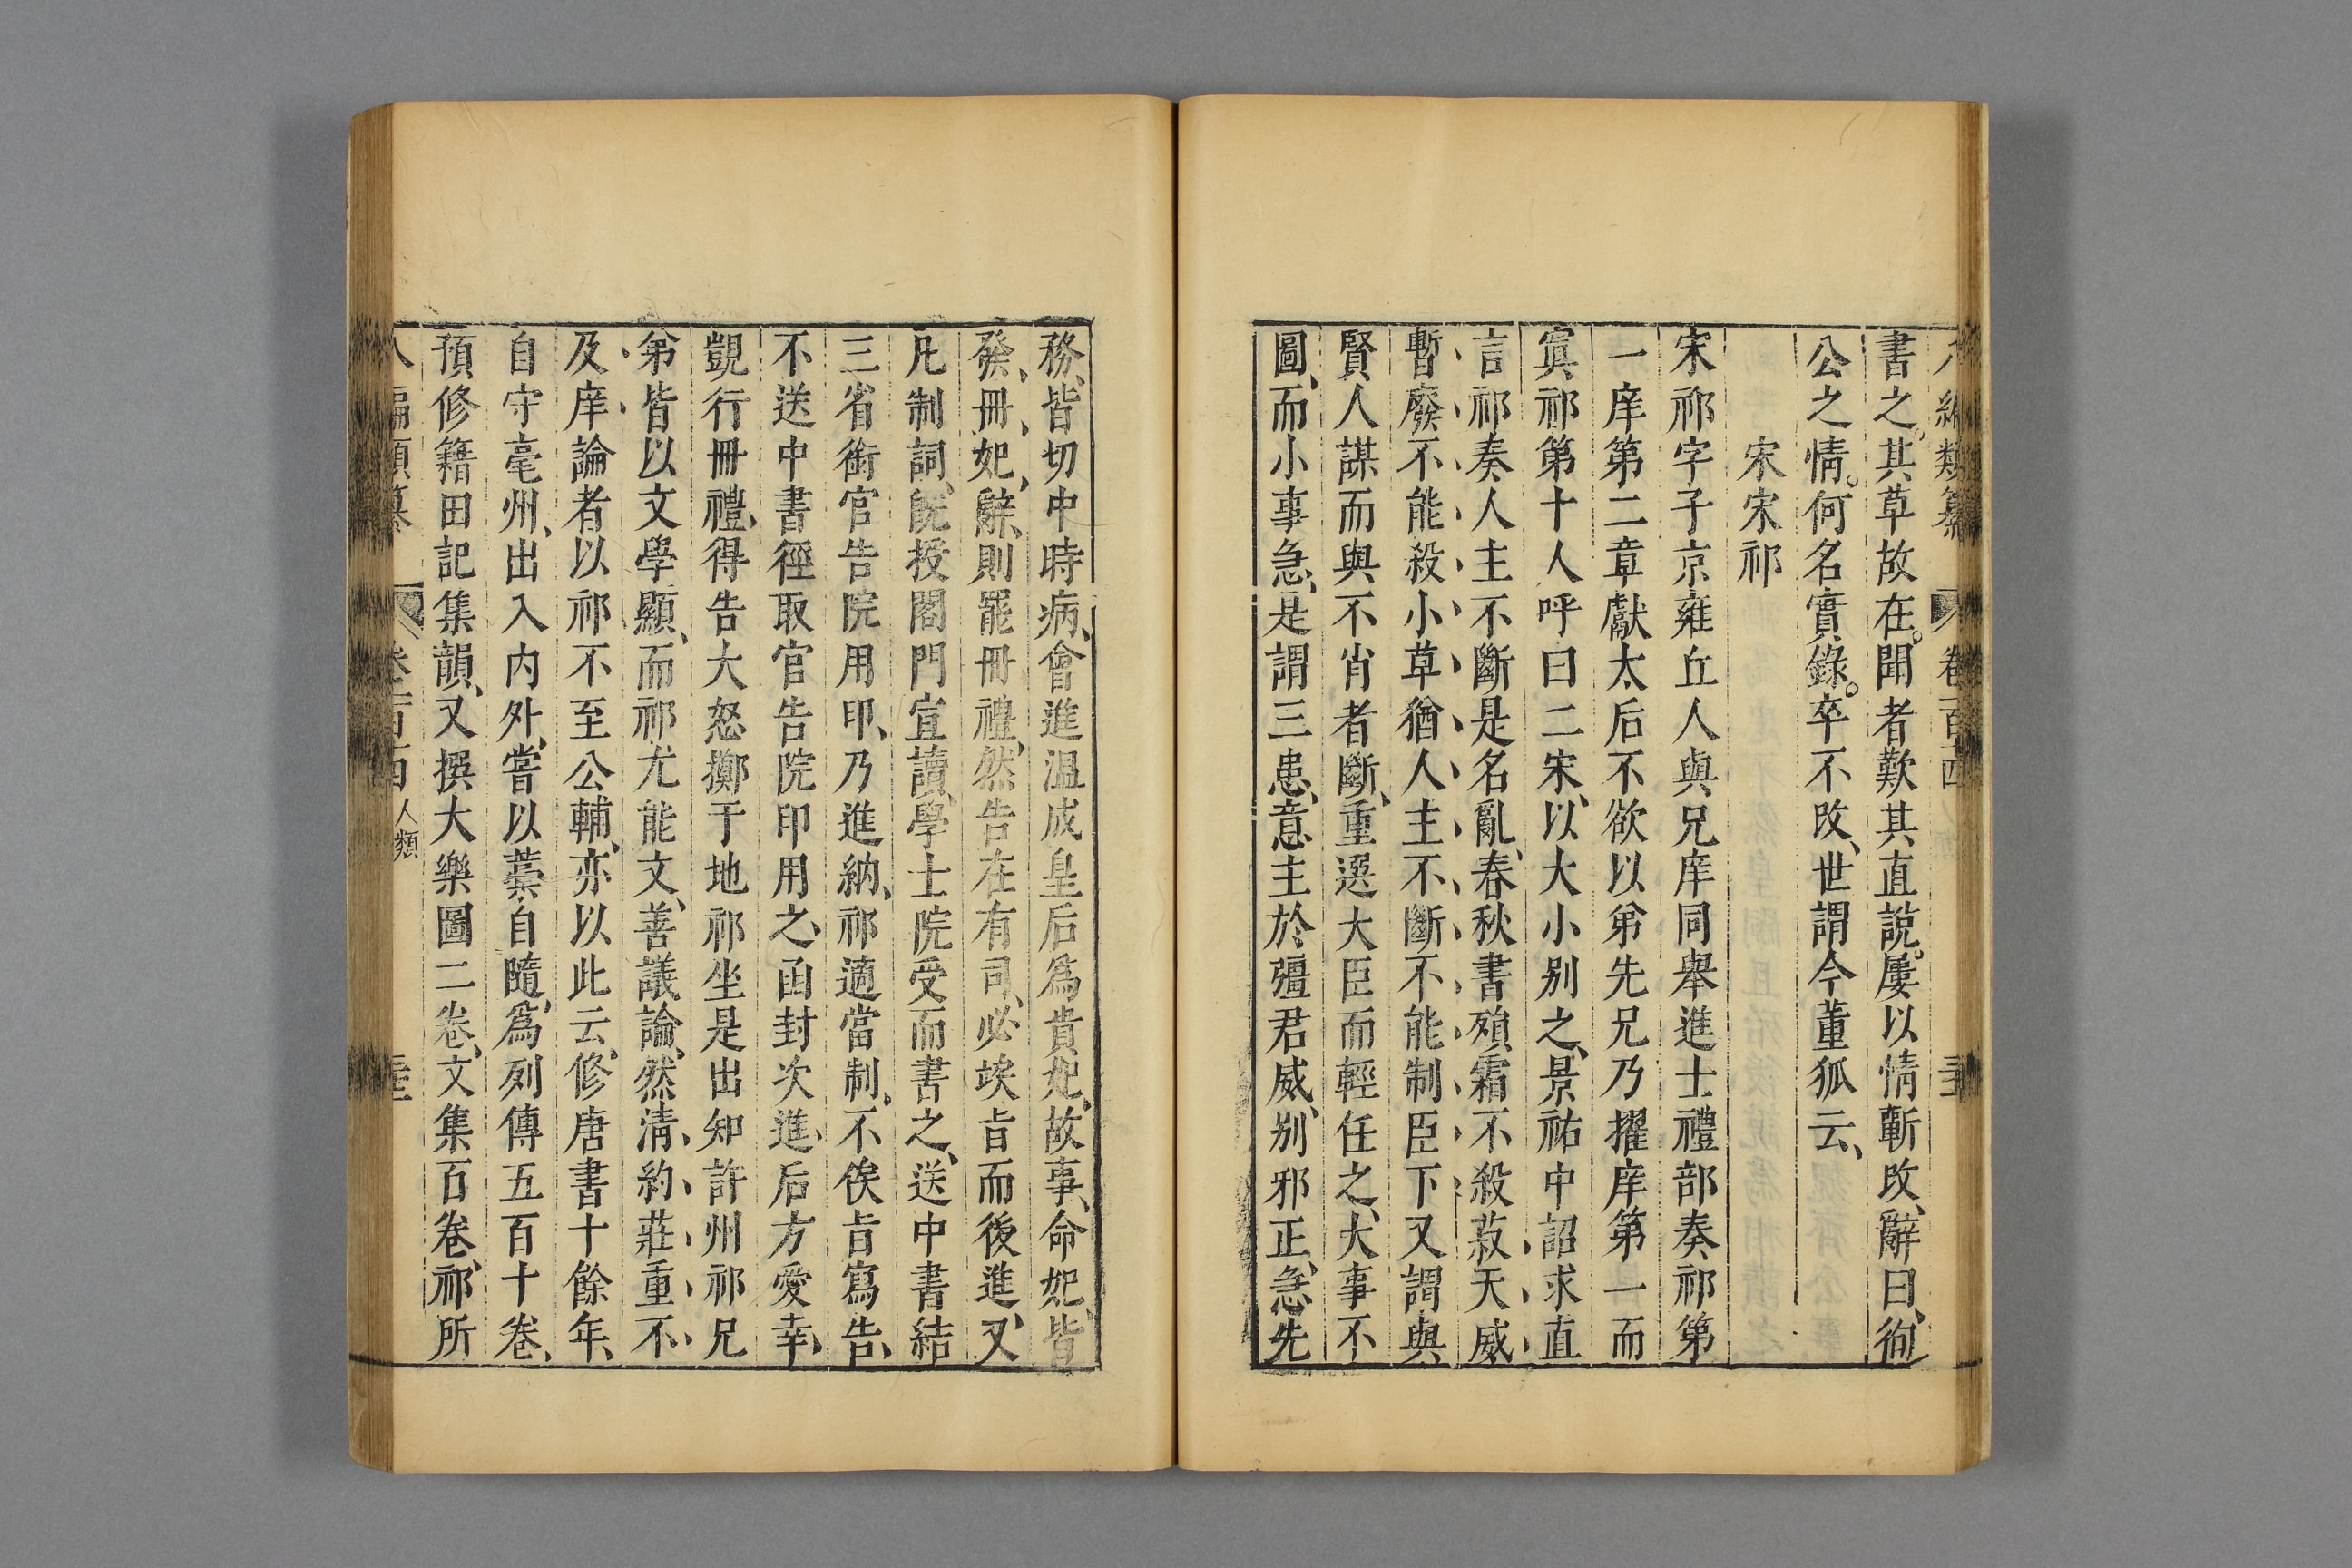 八編類纂 卷一百四
書之。其草故在。聞者歎其直說。屢以情蘄改、辭曰、徇
公之情。何名實錄。卒不改、世謂今董狐云、
宋宋祁
宋祁字子京雍丘人與兄庠同舉進士禮部奏祁第
一庠第二章獻太后不欲以弟先兄乃擢庠第一而
寘祁第十人呼曰二宋、以大小别之、景祐中詔求直
言祁奏人主不斷是名亂、春秋書殞霜不殺菽天威
暫廢不能殺小草猶人主不斷不能制臣下又謂與
賢人謀而與不肖者斷、重選大臣而輕任之、大事不
圖、而小事急、是謂三患、意主於彊君威、别邪正、急先
務、皆切中時病、會進温成皇后爲貴妃、故事、命妃、皆
發冊、妃、辭、則罷冊禮、然告在有司、必竢㫖而後進、又
凡制詞、旣授閤門宣讀、學士院受而書之、送中書結
三省銜官告院用印、乃進納、祁適當制、不俟㫖寫告、
不送中書徑取官告院印用之、凾封次進、后方愛幸、
覬行冊禮、得告大怒擲于地祁坐是出知許州祁兄
弟皆以文學顯、而祁尤能文、善議論、然清約莊重不
及庠論者以祁不至公輔、亦以此云、修唐書十餘年、
自守亳州、出入内外、嘗以藁自隨、爲列傳五百十卷、
預修籍田記集韻、又撰大樂圖二卷、文集百卷、祁所
八編類纂 卷一百四 人類